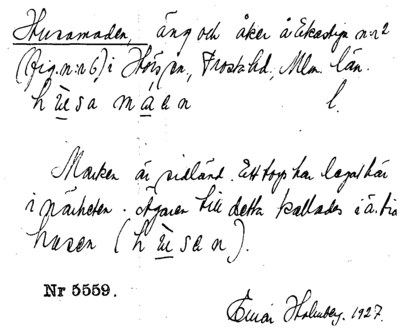 Husamaden, äng och åker å Ekastiga n:r 2
(fig. n:r 6) i Hörs sn, Frosta hd, Mlm. län.
hùsa måen l.
Marken är sidländ. Ett torp har legat här
i närheten. Ägaren till detta kallades
husen (hùsen).
Nr 5559.
Einar Holmberg. 1927.